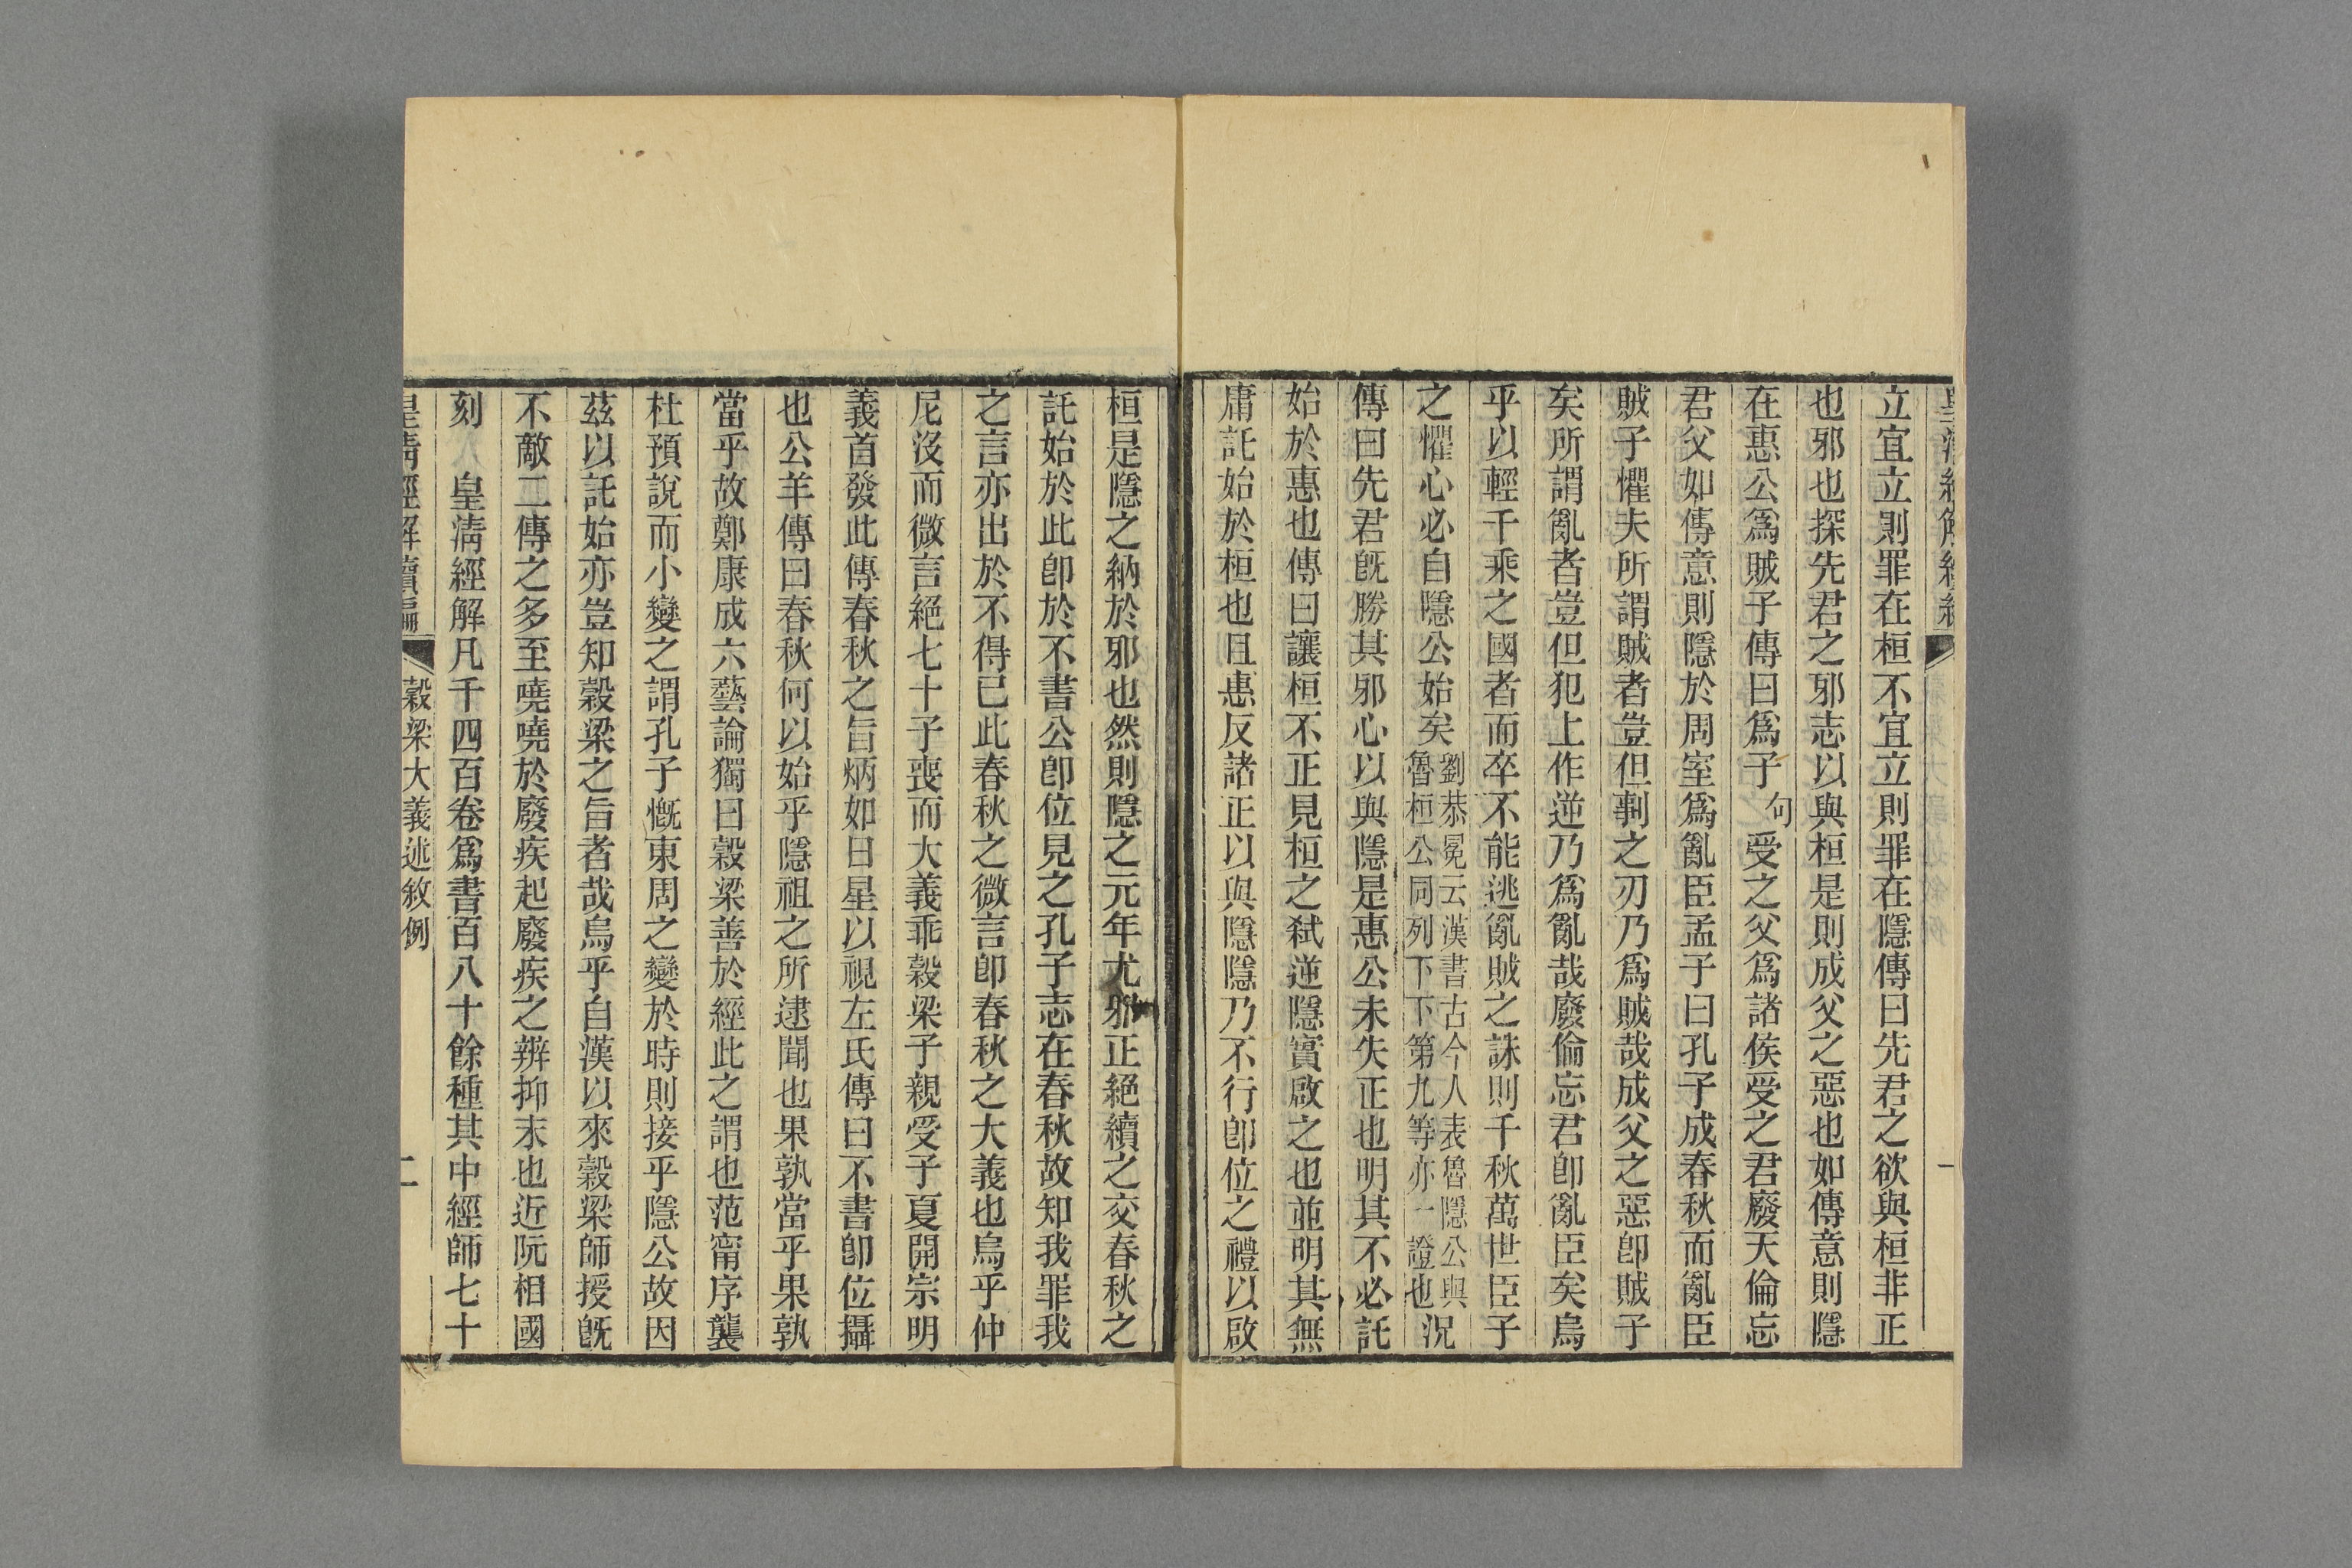 立宜立則罪在桓不宜立則罪在隱傳曰先君之欲與桓非正
也邪也探先君之邪志以與桓是則成父之惡也如傳意則隱
在惠公爲賊子傳曰爲子句受之父爲諸侯受之君廢天倫忘
君父如傳意則隱於周室爲亂臣孟子曰孔子成春秋而亂臣
賊子懼夫所謂賊者豈但剚之刃乃爲賊哉成父之惡卽賊子
矣所謂亂者豈但犯上作逆乃爲亂哉廢倫忘君卽亂臣矣烏
乎以輕千乘之國者而卒不能逃亂賊之誅則千秋萬世臣子
之懼心必自隱公始矣劉恭冕云漢書古今人表魯隱公與魯桓公同列下下第九等亦一證也況
傳曰先君旣勝其邪心以與隱是惠公未失正也明其不必託
始於惠也傳曰讓桓不正見桓之弒逆隱實啟之也並明其無
庸託始於桓也且惠反諸正以與隱隱乃不行卽位之禮以啟
桓是隱之納於邪也然則隱之元年尤邪正絕續之交春秋之
託始於此卽於不書公卽位見之孔子志在春秋故知我罪我
之言亦出於不得已此春秋之微言卽春秋之大義也烏乎仲
尼沒而微言絕七十子喪而大義乖穀梁子親受子夏開宗明
義首發此傳春秋之旨炳如日星以視左氏傳曰不書卽位攝
也公羊傳曰春秋何以始乎隱祖之所逮聞也果孰當乎果孰
當乎故鄭康成六藝論獨曰穀梁善於經此之謂也范甯序襲
杜預說而小變之謂孔子慨東周之變於時則接乎隱公故因
茲以託始亦豈知穀梁之旨者哉烏乎自漢以來穀梁師授旣
不敵二傳之多至嘵嘵於廢疾起廢疾之辨抑末也近阮相國
刻　皇清經解凡千四百卷爲書百八十餘種其中經師七十
皇清經解續編　穀梁大義述敘例　二